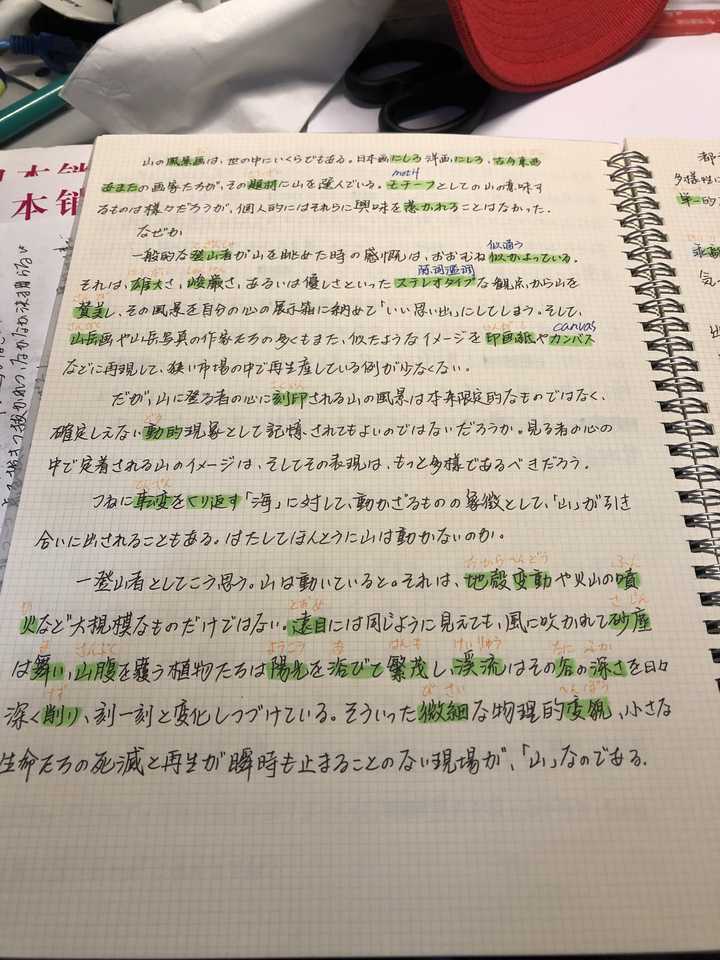 山の風景画は、世の中にいくらでもある。日本画にしろ洋画にしろ、古今東西
あまたの画家たちが、その題材に山を選んでいる。モチーフとしての山の意味す
motif
るものは様々だろうが、個人的にはそれらに興味を惹かれることはなかった。
なぜか
一般的な登山者が山を眺めた時の感慨は、おおむね似かよっている。
似通う
それは、雄大さ、峻厳さ、あるいは優しさといったステレオタイプな観点から山を
賛美し、その風景を自分の心の展示箱に納めて「いい思い出」にしてしまう。そして、
山岳画や山岳写真の作家たちの多くもまた、似たようなイメージを印画紙やカンバス
canvas
などに再現して、狭い市場の中で再生産している例が少なくない。
だが、山に登る者の心に刻印される山の風景は本来限定的なものではなく、
確定しえない動的現象として記憶されてもよいのではないだろうか。見る者の心の
中で定着される山のイメージは、そしてその表現は、もっと多様であるべきだろう。
つねに転変をくり返す「海」に対して、動かざるものの象徴として、「山」が引き
合いに出されることもある。はたしてほんとうに山は動かないのか。
一登山者としてこう思う。山は動いていると。それは、地殻変動や火山の噴
火など大規模なものだけではない。遠目には同じように見えても、風に吹かれて砂塵
は舞い、山腹を覆う植物たちは陽光を浴びて繁茂し、渓流はその谷の深さを日々
深く削り、刻一刻と変化しつづけている。そういった微細な物理的変貌、小さな
生命たちの死滅と再生が瞬時も止まることのない現場が、「山」なのである。
本销